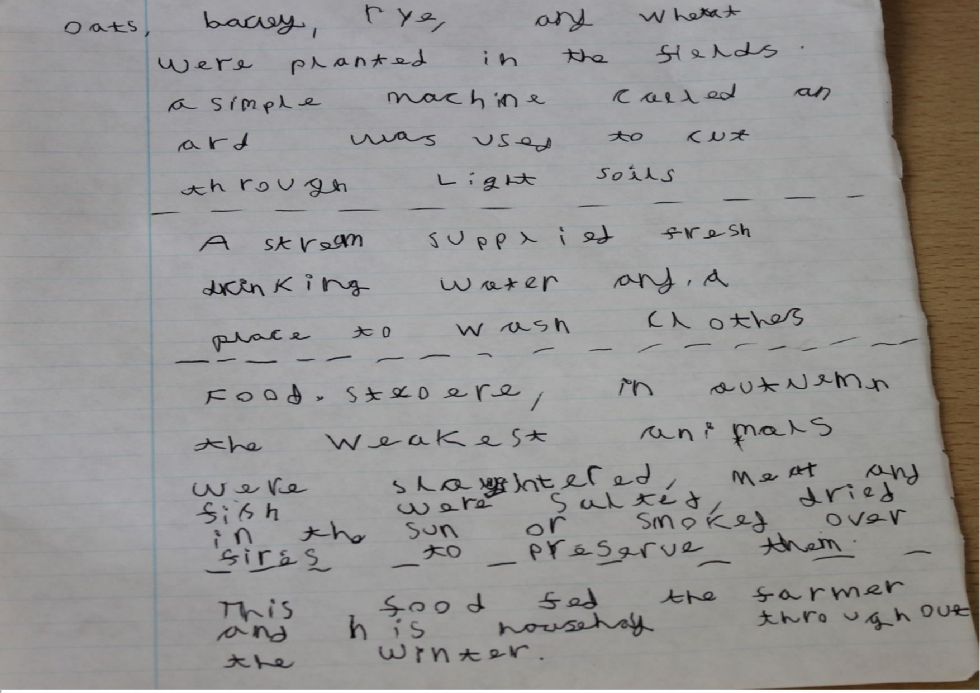 oats, bacley, rye, and wheat
were planted in the fields.
a simple machine called an
ard was used to cut
through Light soils
A stream supplied fresh
drinking water and, a
place to wash clothes
Food. in autuemn
the weakest animals
were slaughtered, meat and
fish were salted, dried
in the sun or smoked over
fires to preserve them.
This food fed the farmer
and his househoy throughout
the winter.